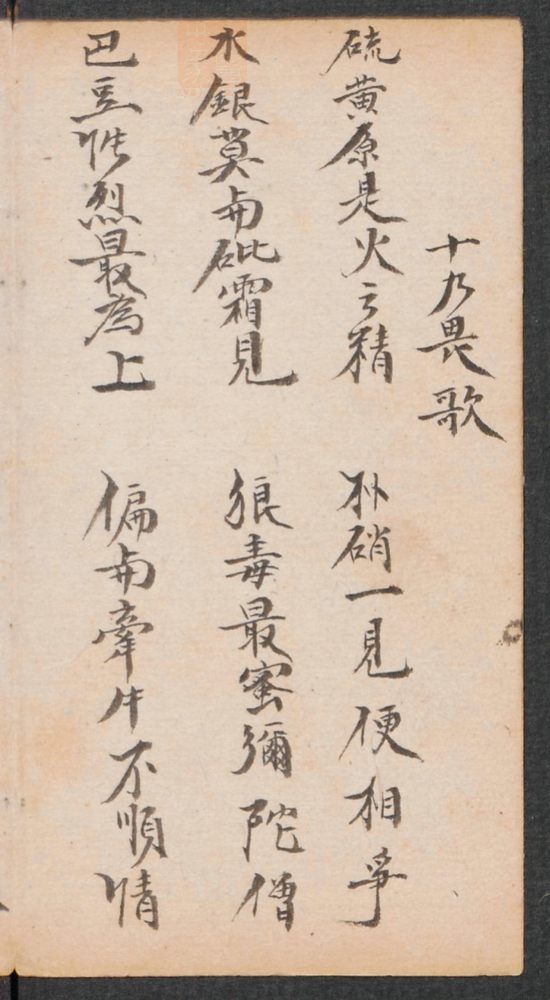 十九畏歌
硫黄原是火之精 朴硝一見便相爭
水銀莫與砒霜見 狼毒最蜜彌陀僧
巴豆性烈最為上 偏與牽牛不順情